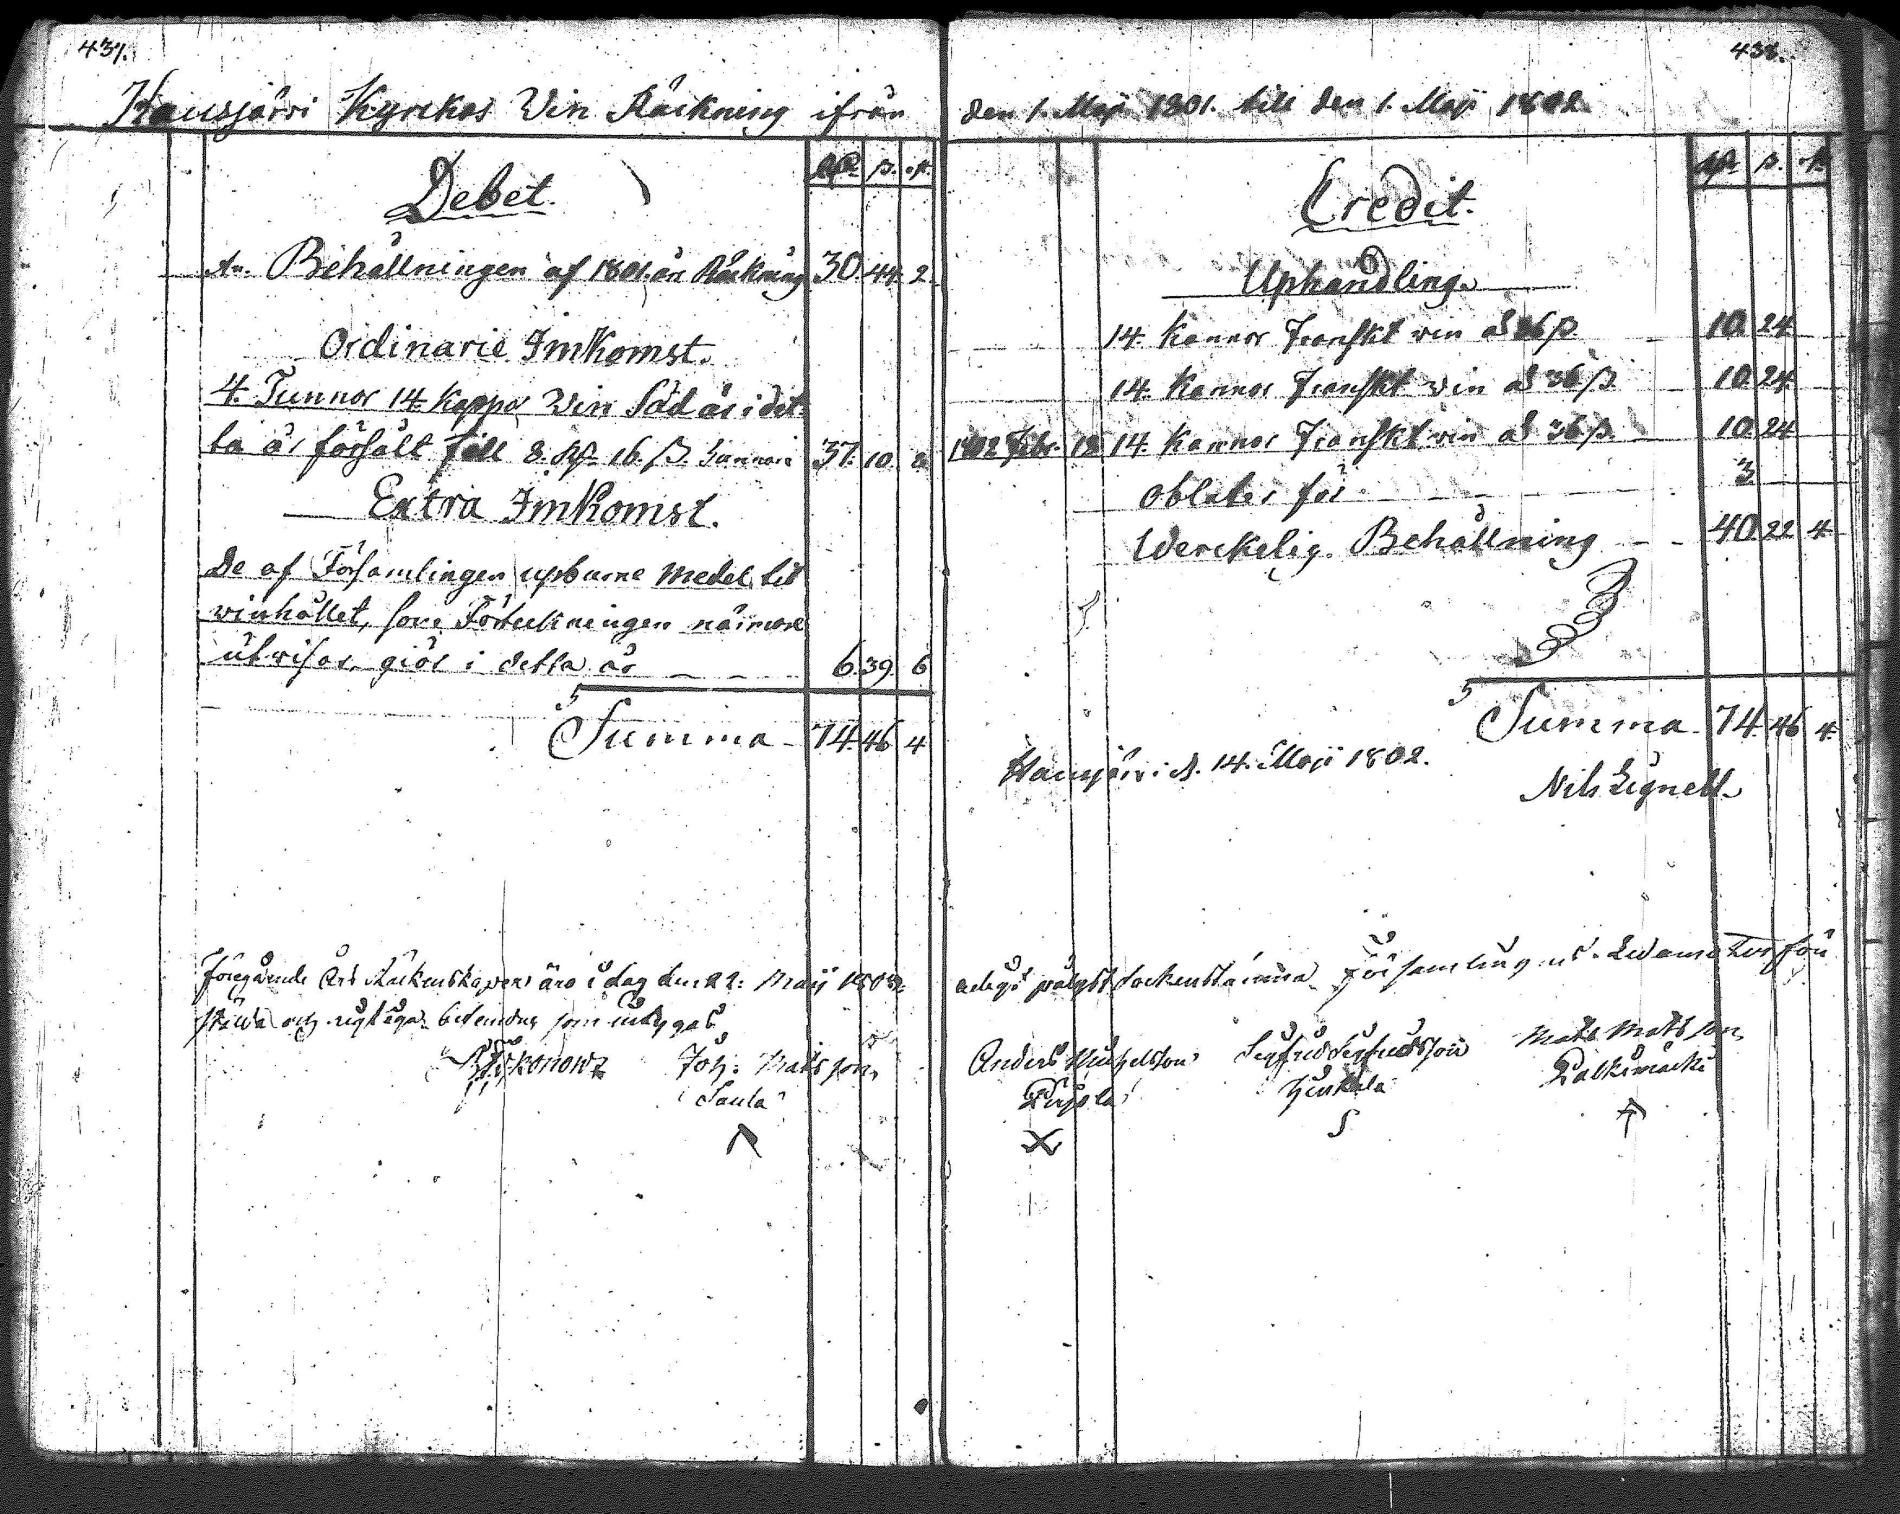 437.
Hausjärvi Kyrckos Vin Räckning ifrån
Rd. ß. r.
Debet.
An. Behållningen af 1801 års Räckning 30. 44. 2
Ordinarie Imkomst.
4. Tunnor 14 kappar Vin Säd är i det-
ta år försålt till 8. Rd. 16. ß Tunnan 37. 10. 8
Extra Imkomst.
De af Församlingen upburne Medel til
vinhållet, som Förteckningen närmare
utvisar, giör i detta år 6. 39. 6
Summa 74. 46. 4
Föregående års Räckenskaper äro i dag den 22: Maji 1802
och riktiga befundne som intygas
Joh: Mats son
Saula
438.
den 1. Maji 1801. till den 1. Maji 1802
Rd. ß. r.
Credit.
Uphandling.
14. Kannor Franskt vin a 36 ß 10. 24
14. Kannor Franskt vin a 36 ß 10. 24
1802 Febr. 18 14. Kannor Franskt vin a 36 ß. 10. 24
Oblater för 3
Werckelig. Behållning 40. 22. 4
Summa 74. 46. 4
Hausjärvi d. 14. Maji 1802.
Nils Lignell.
Sockenstämma Församlingens Ledamöter från
Anders Michelsson Sigfred Sigfredsson Mats Matsson
Pujola Hiukala Palkimäcki